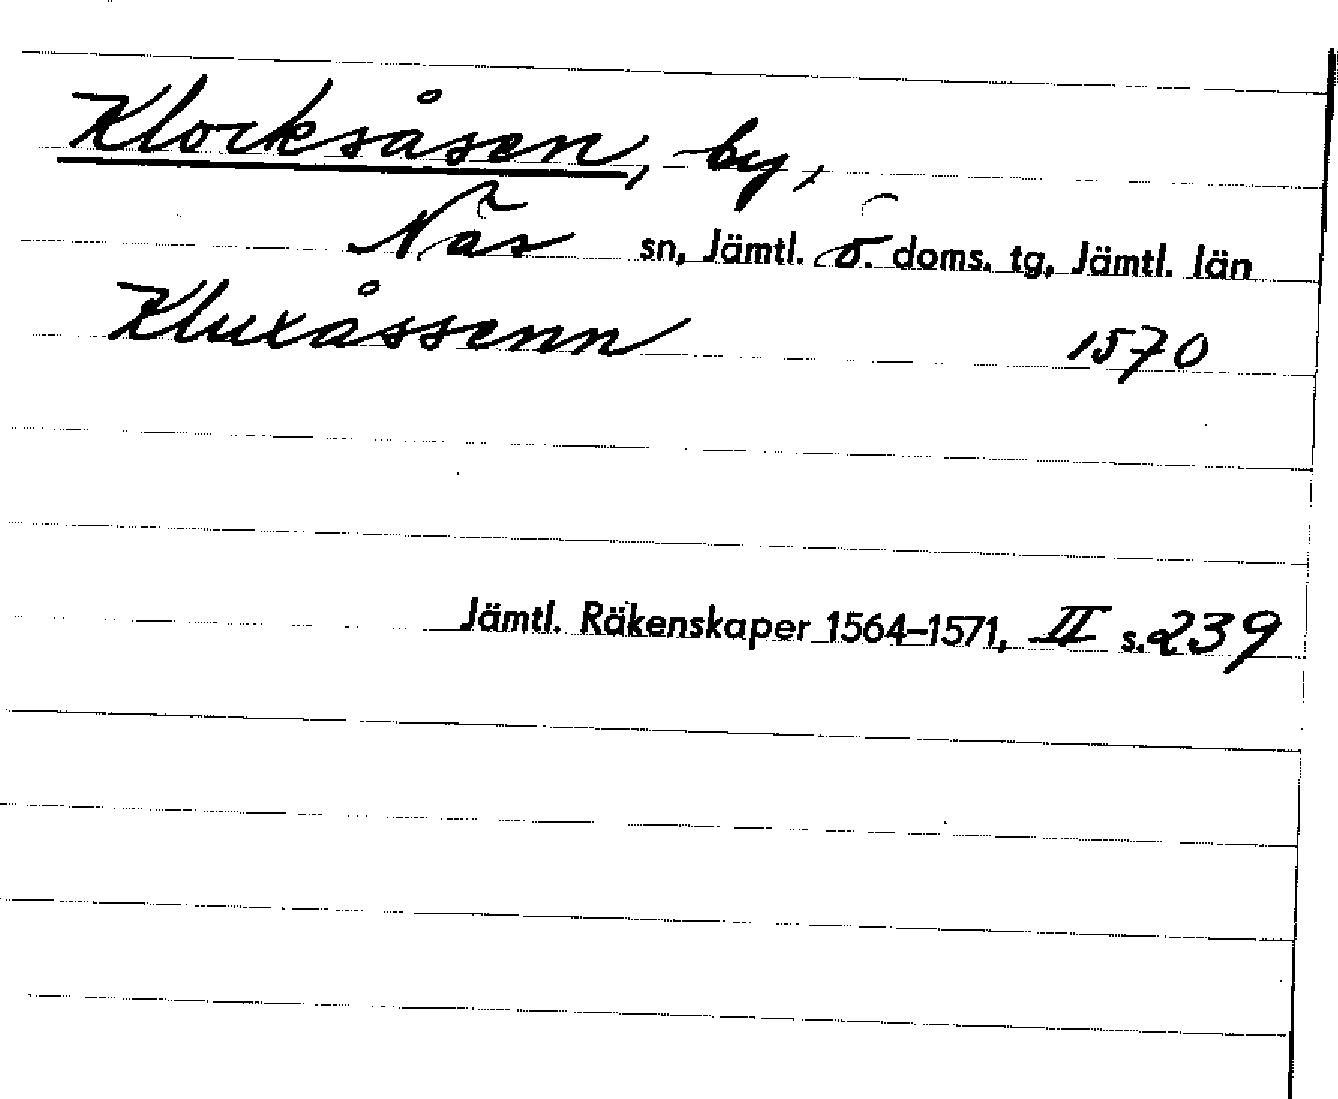 Klocksåsen, by,
Näs sn, Jämtl. ö. doms. tg, Jämtl. län
Kluxåssenn 1570
Jämtl. Räkenskaper 1564–1571, II s. 239